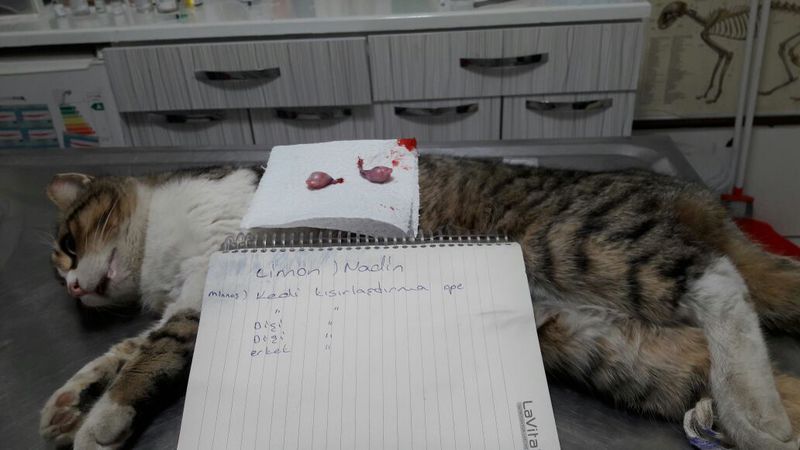 Limon ) Nadin
mınnoş) Kedi kısırlaştırma ope
" "
Dişi "
Dişi "
erkek "
LaVita